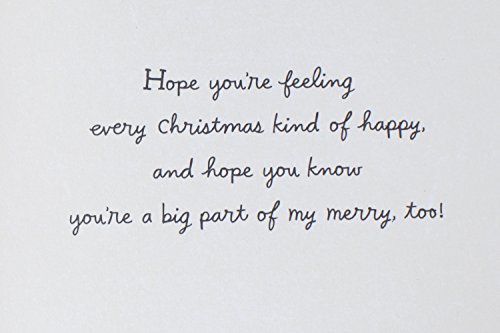 Hope you're feeling
every Christmas kind of happy,
and hope you know
you're a big part of my merry, too!